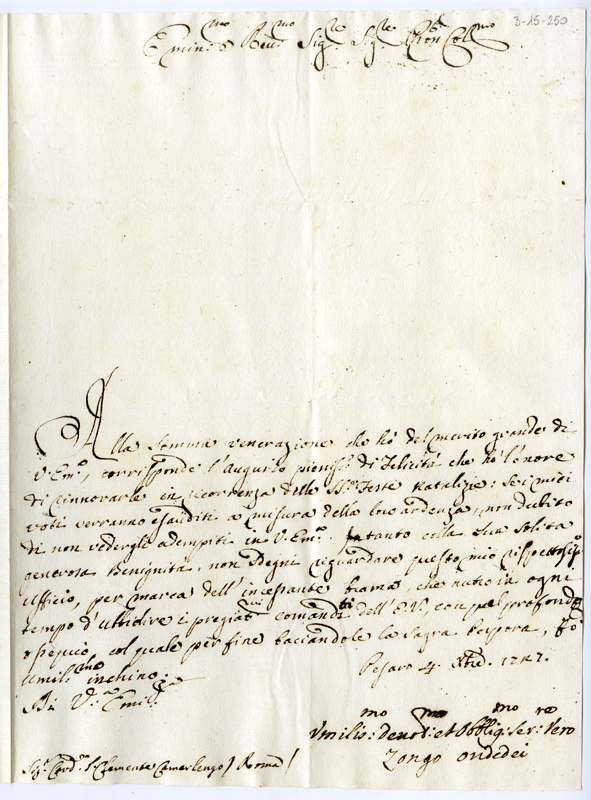 3-15-250
Emin.mo e Rev.mo Sig.re Sig.re Pron Col.mo
Alla somma venerazione che hò del merito grande di
V. Em.a, corrisponde l'Augurio pieniss.o di Felicità che hò l'onore
di rinnovarle in ricorrenza delle SS.e Feste Natalizie: Se i miei
voti verranno esauditi a misura della loro ardenza, non dubito
di non vedergli adempiti in V. Em.a. Intanto colla Sua solita
generosa Benignità, non sdegni riguardare questo mio rispettosis.o
Ufficio, per marca dell'incessante brama, che nutro in ogni
tempo d'ubidire i pregiat.mi comandi dell'E.V., con quel profondo
ossequio, col quale per fine baciandole la Sagra Porpora, Le fò
umilis.mo inchino.
Di V.a Emi.za
Pesaro 4 Xbre 1727.
Umilis.mo Devot.mo et Obblig.mo Ser.re Vero
Zongo Ondedei
Sig. Card. S. Clemente Camerlengo / Roma /